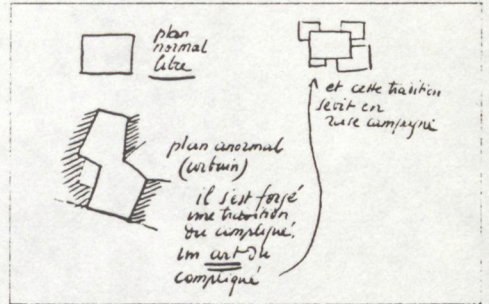 plan
normal
libre
et cette tradition
sévit en
rase campagne
plan anormal
(urbain)
il s'est forgé
une tradition
du compliqué.
un art du
compliqué